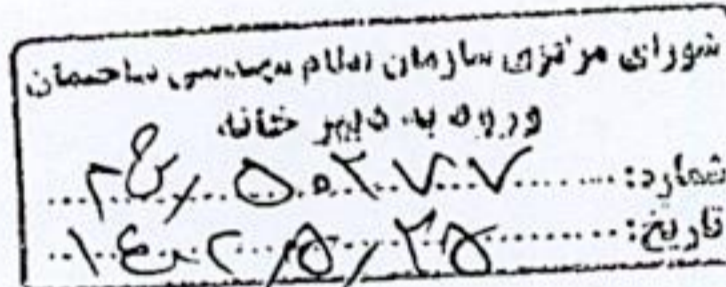 شورای مرکزی سازمان نظام مهندسی ساختمان
ورود به دبیرخانه
شماره:
تاریخ: ۱۴۰۲/۵/۲۵